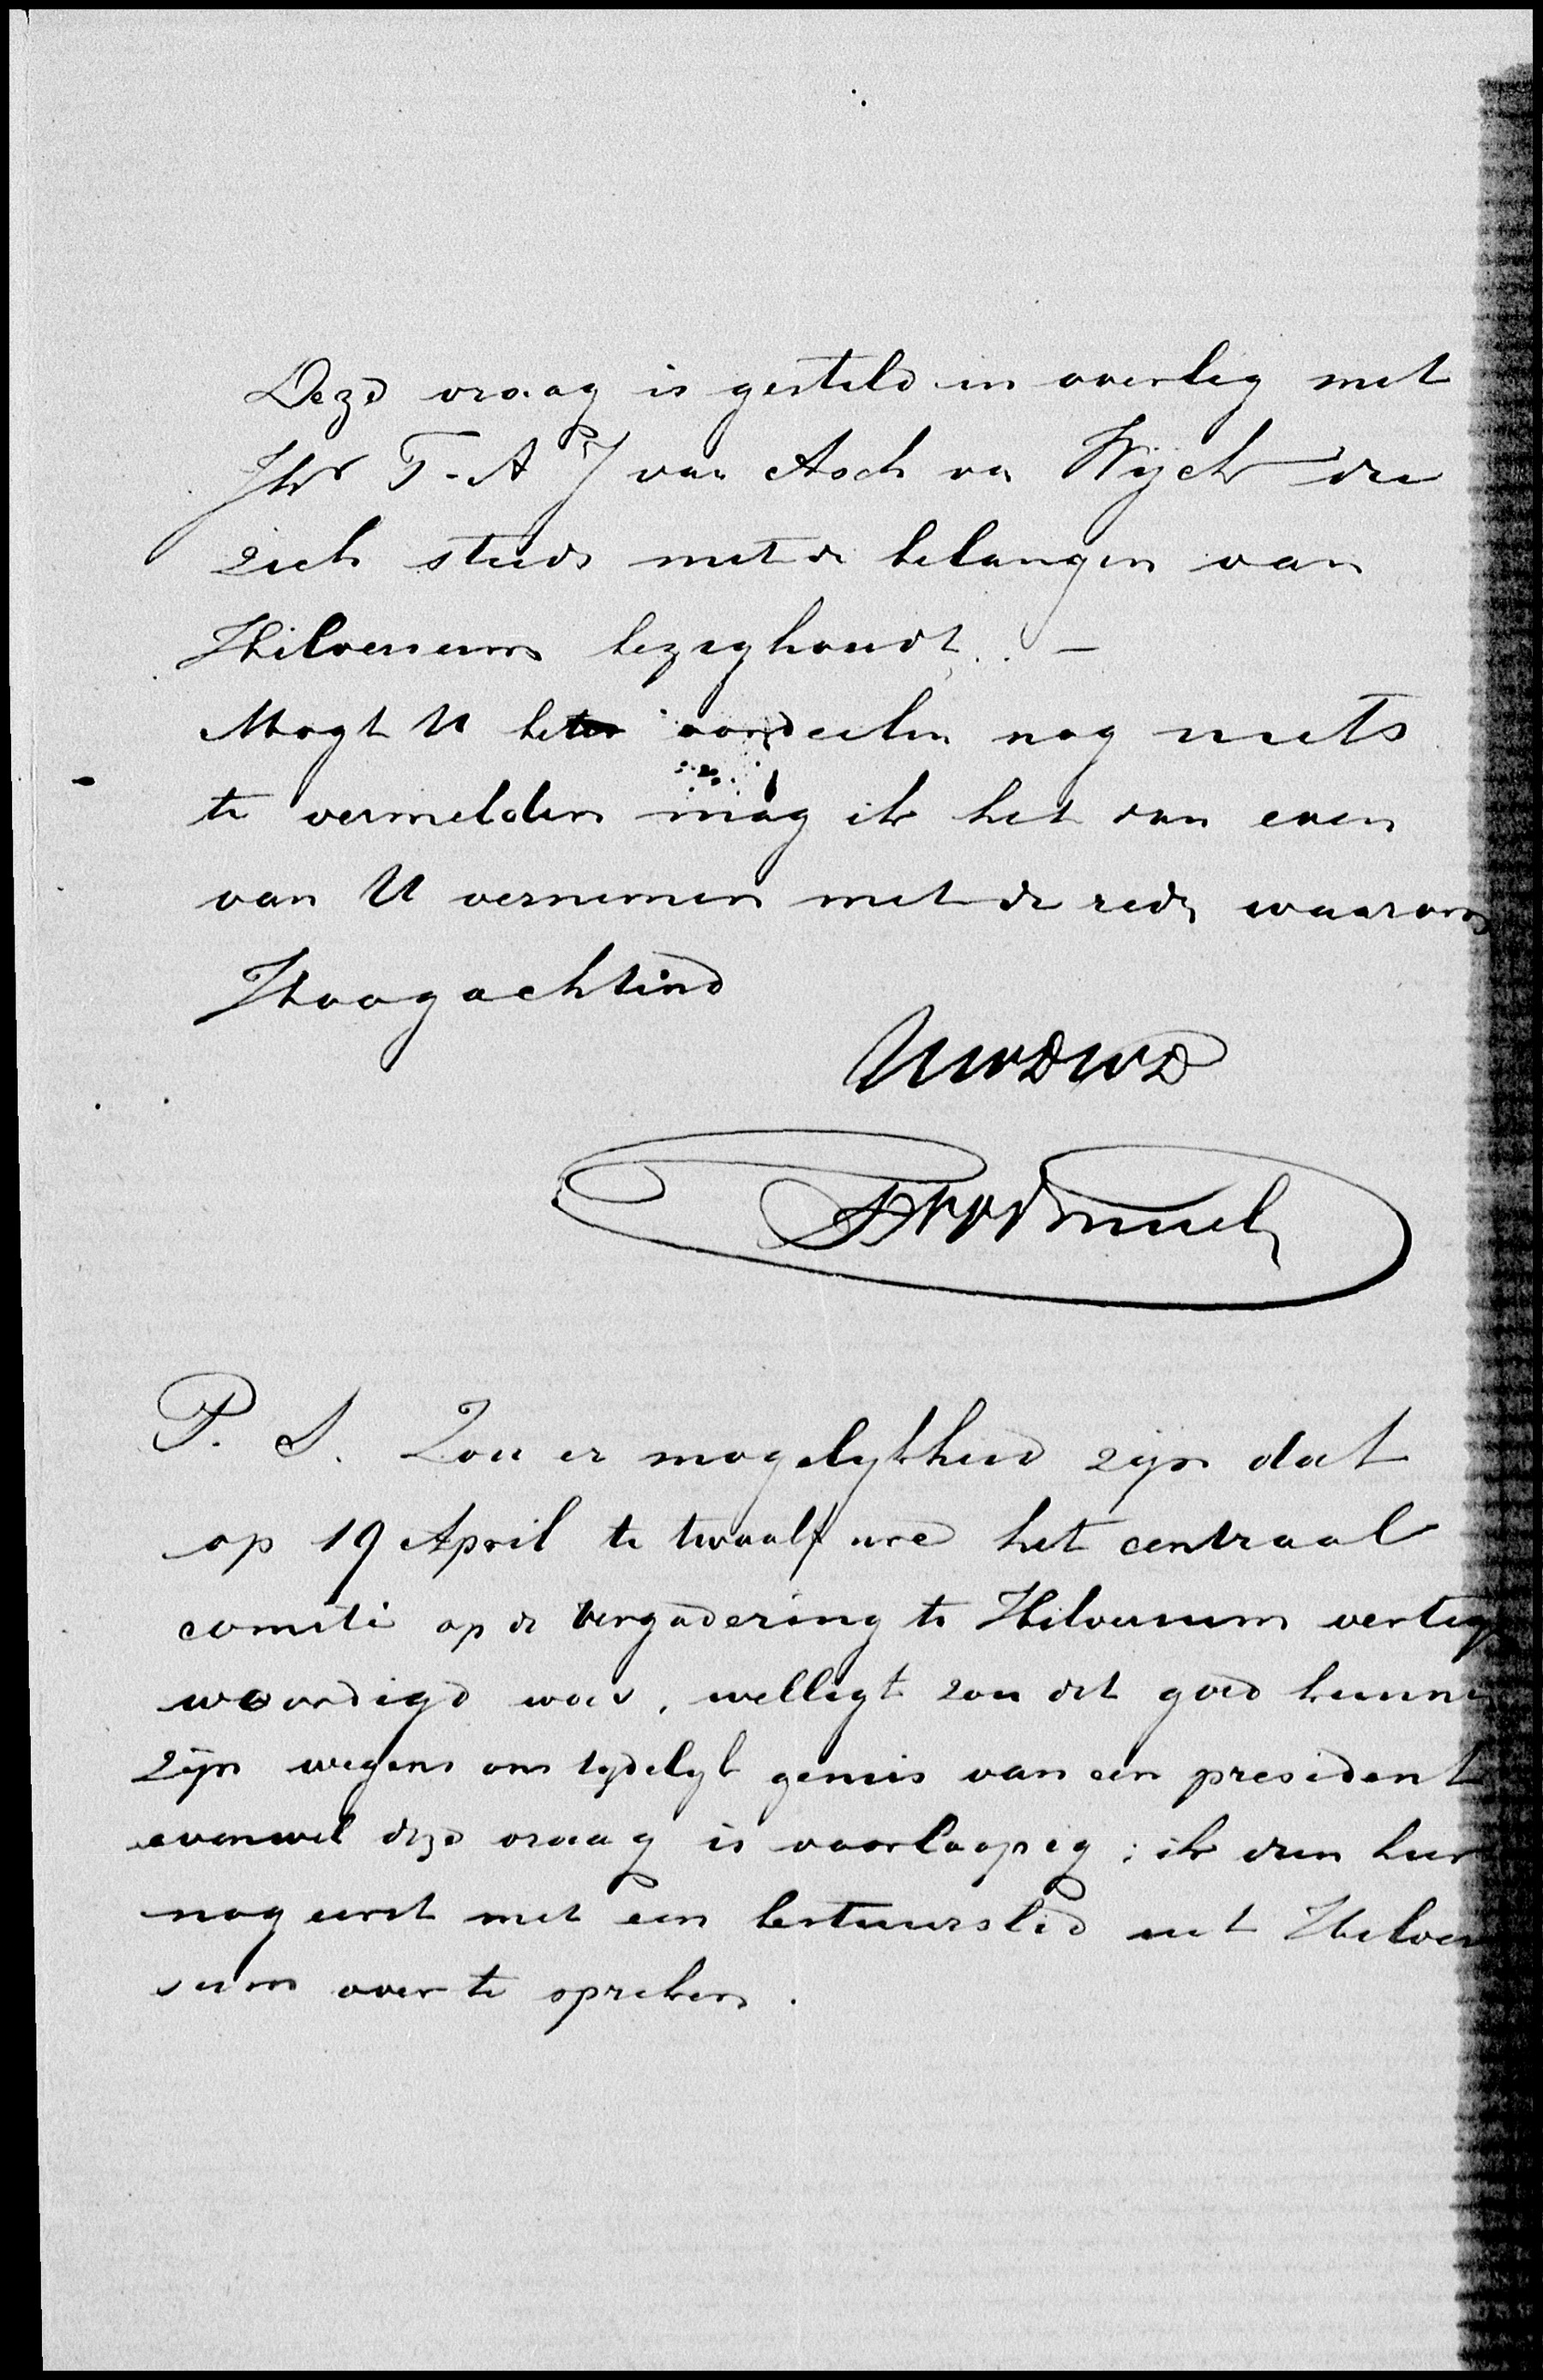 Deze vraag is gesteld in overleg met
Jhr T. A J van Asch van Wijck die
zich steeds met de belangen van
Hilversum bezighoudt. —
Mogt U het oordeelen nog niets
te vermelden mag ik het dan even
van U vernemen met de rede waarom
Hoogachtend
UwDwD
P. S. Zou er mogelykheid zijn dat
op 19 April te twaalf ure het centraal
comite op de vergadering te Hilversum verteg
woordigd was, welligt zou dit goed kunne
zijn wegens ons tydelyk gemis van een president
evenwel deze vraag is voorloopig; ik dien hier
nog eerst met een bestuurslid uit Hilver
sum over te spreken.